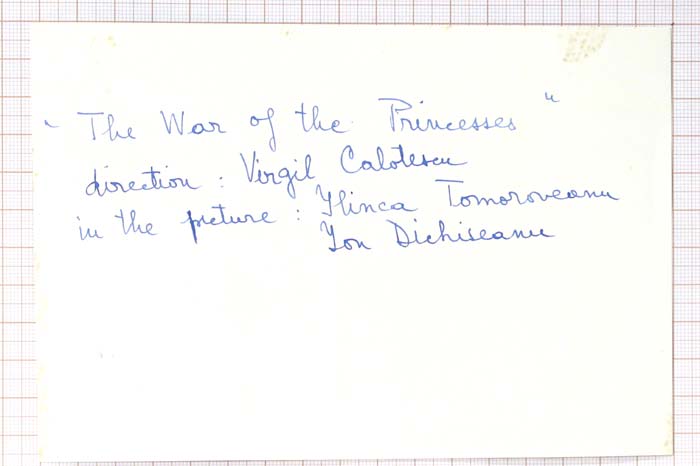 "The War of the Princesses"
direction : Virgil Calotescu
in the picture : Ylinca Tomoroveanu
Yon Dichiseanu